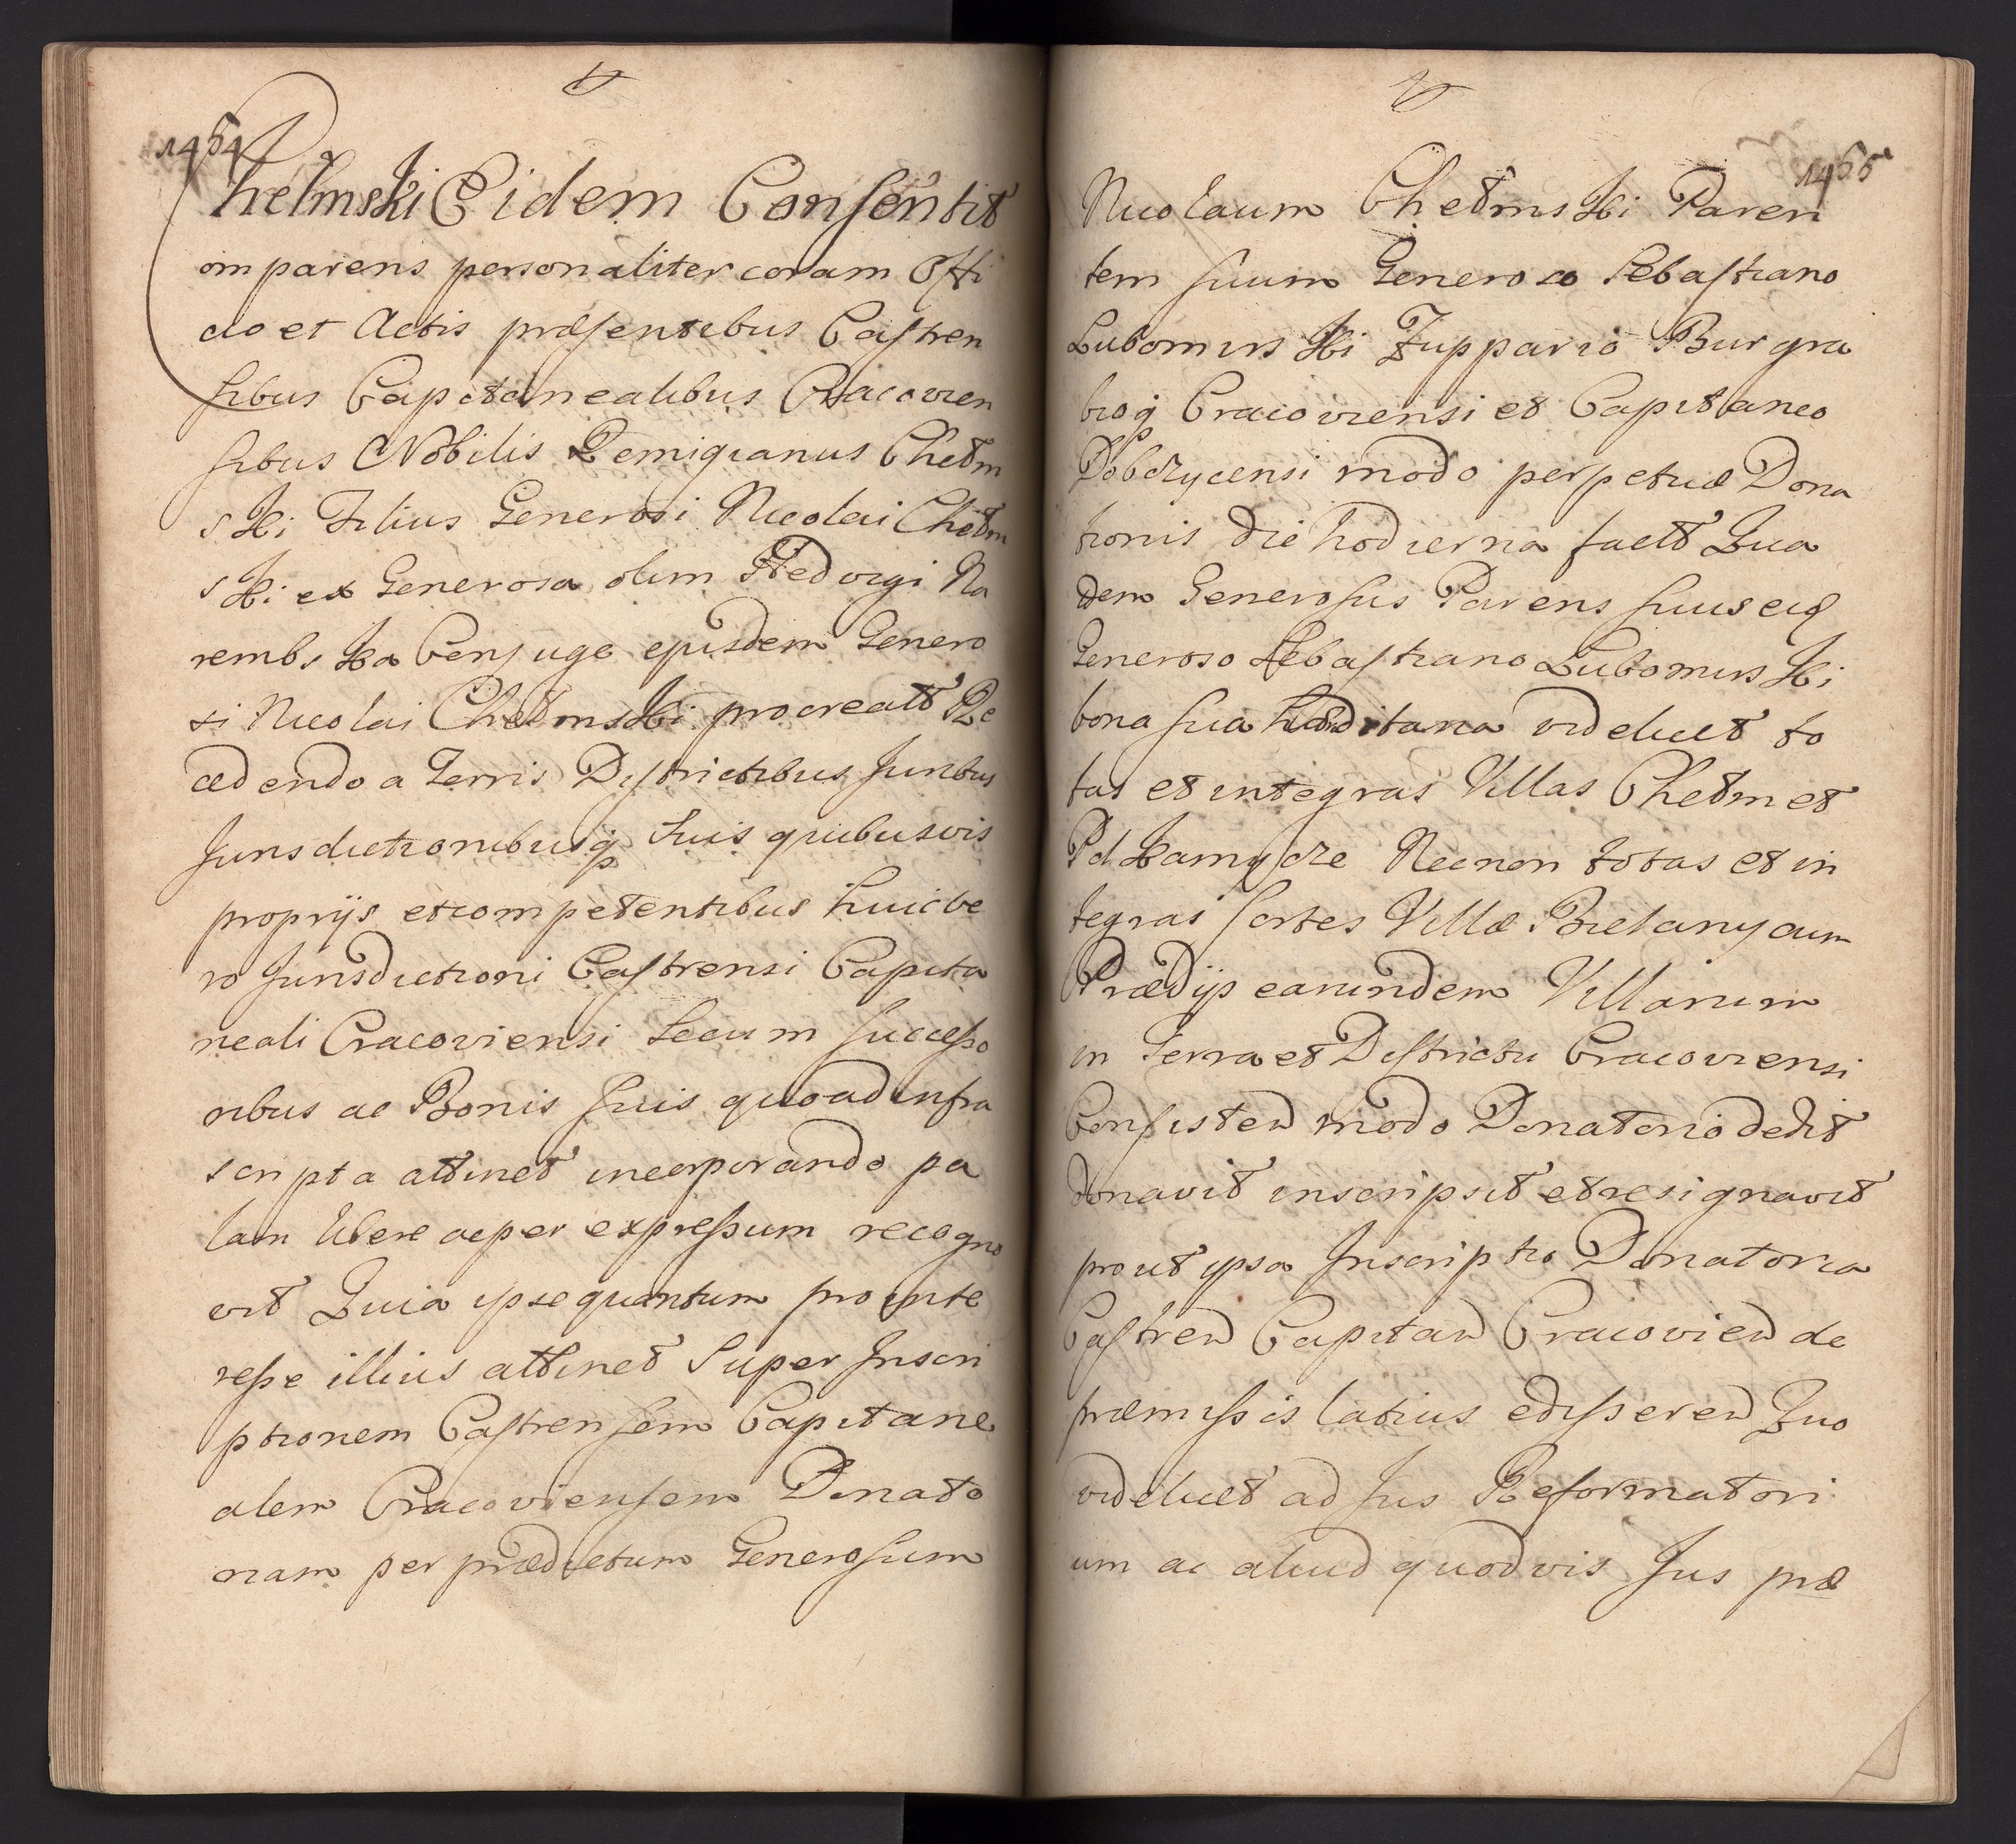 1454
Chelmski Eidem Consentit
omparens personaliter coram Offi
cio et Actis præsentibus Castren
sibus Capitanealibus Cracovien
sibus Nobilis Remigianus Chełm
ski Filius Generosi Nicolai Chełm
ski ex Generosa olim Hedvigi Na
rembska Conjuge ejusdem Genero
si Nicolai Chełmski procreatt Re
cedendo a Terris Districtibus Juribus
Jurisdictionibusq suis quibusvis
proprijs et competentibus huic ve
ro Jurisdictioni Castrensi Capita
neali Cracoviensi Secum successo
ribus ac Bonis suis quoad infra
scripta attinet incorporando pa
lam libere ac per expressum recogno
vit Quia ipse quantum pro inte
resse illius attinet Super Inscri
ptionem Castrensem Capitane
alem Cracoviensem Donato
riam per prædictum Generosum
1455
Nicolaum Chełmski Paren
tem suum Generoso Sebastiano
Lubomirski Zuppario Burgra
bioq Cracoviensi et Capitaneo
Dobczycensi modo perpetuæ Dona
tionis die hodierna factt Qua
dem Generosus Parens suus eid
Generoso Sebastiano Lubomirski
bona sua hæreditaria videlicet to
tas et integras Villas Chełm et
Pdkamycze Necnon totas et in
tegras sortes Villæ Bielany cum
Prædijs earundem Villarum
in Terra et Districtu Cracoviensi
Consisten modo Donatorio dedit
donavit inscripsit et resignavit
prout ipsa Inscriptio Donatoria
Castren Capitan Cracovien de
præmissis latius edisseren Quo
videlicet ad Jus Reformatori
um ac aliud quodvis Jus præ